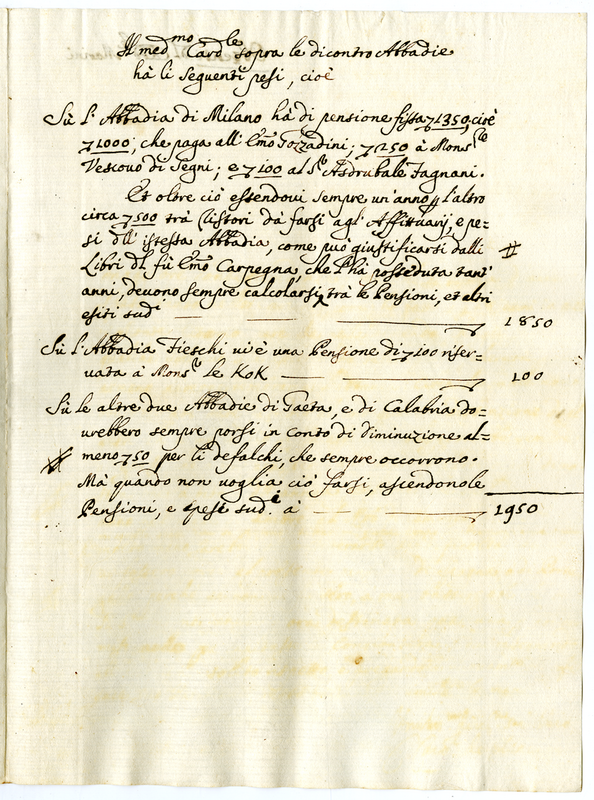 Il med.mo Card.le sopra le dicontro Abbadie
hà li seguenti pesi, cioè
Sù l'Abbadia di Milano hà di pensione fissa ▽1350, cioè
▽1000, che paga all' Emo Gozzadini; ▽250 à Mons.re
Vescovo di Segni; e ▽100 al S.r Asdrubale Fagnani.
Et oltre ciò essendovi sempre un'anno p l'altro
circa ▽500 trà Ristori da farsi agl' Affittuarij, e pe=
si dll' istessa Abbadia, come può giustificarsi dalli
Libri dl fù Emo Carpegna, che l'hà posseduta tant'
anni, devono sempre calcolarsi trà le Pensioni, et altri
esiti sud.i 1850
Sù l'Abbadia Fieschi vi è una Pensione di ▽100 riser=
vata à Mons.r le KoK 100
Sù le altre due Abbadie di Gaeta, e di Calabria do=
vrebbero sempre porsi in conto di diminuzione al=
meno ▽50 per li defalchi, che sempre occorrono.
Mà quando non voglia ciò farsi, ascendono le
Pensioni, e spese sud.e à 1950